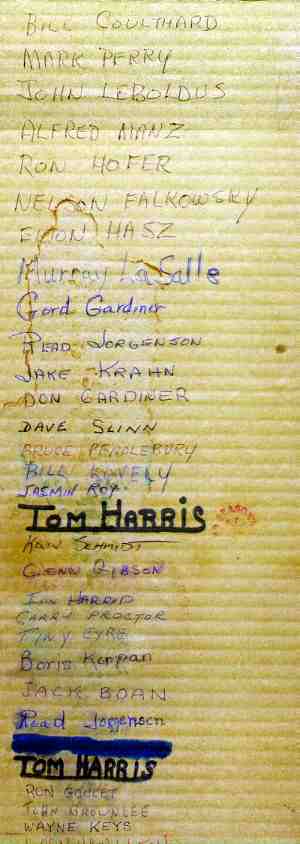 BILL COULTHARD
MARK PERRY
JOHN LEBOLDUS
ALFRED MANZ
RON HOFER
NELSON FALKOWSKY
HASZ
Murray LaSalle
Gord Gardiner
READ JORGENSON
JAKE KRAHN
DON GARDINER
DAVE SLINN
BRUCE PENDLEBURY
BILL KIVELY
JASMIN ROY
TOM HARRIS
SCHMIDT
GLENN GIBSON
HARRID
GARRY PROCTOR
TINY EYRE
Boris
JACK BOAN
Read Jorgenson
TOM HARRIS
RON GOULET
JOHN BROWNLEE
WAYNE KEYS